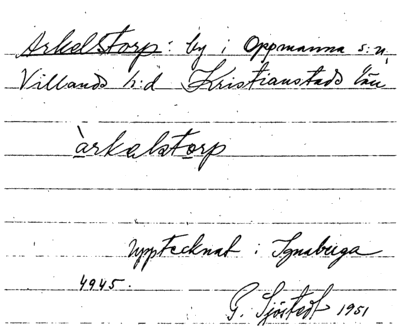 Arkelstorp: by i Oppmanna s:n,
Villands h:d Kristianstads län
àrkalstorp
Upptecknat i Ignaberga
4945.
G. Sjöstedt 1951